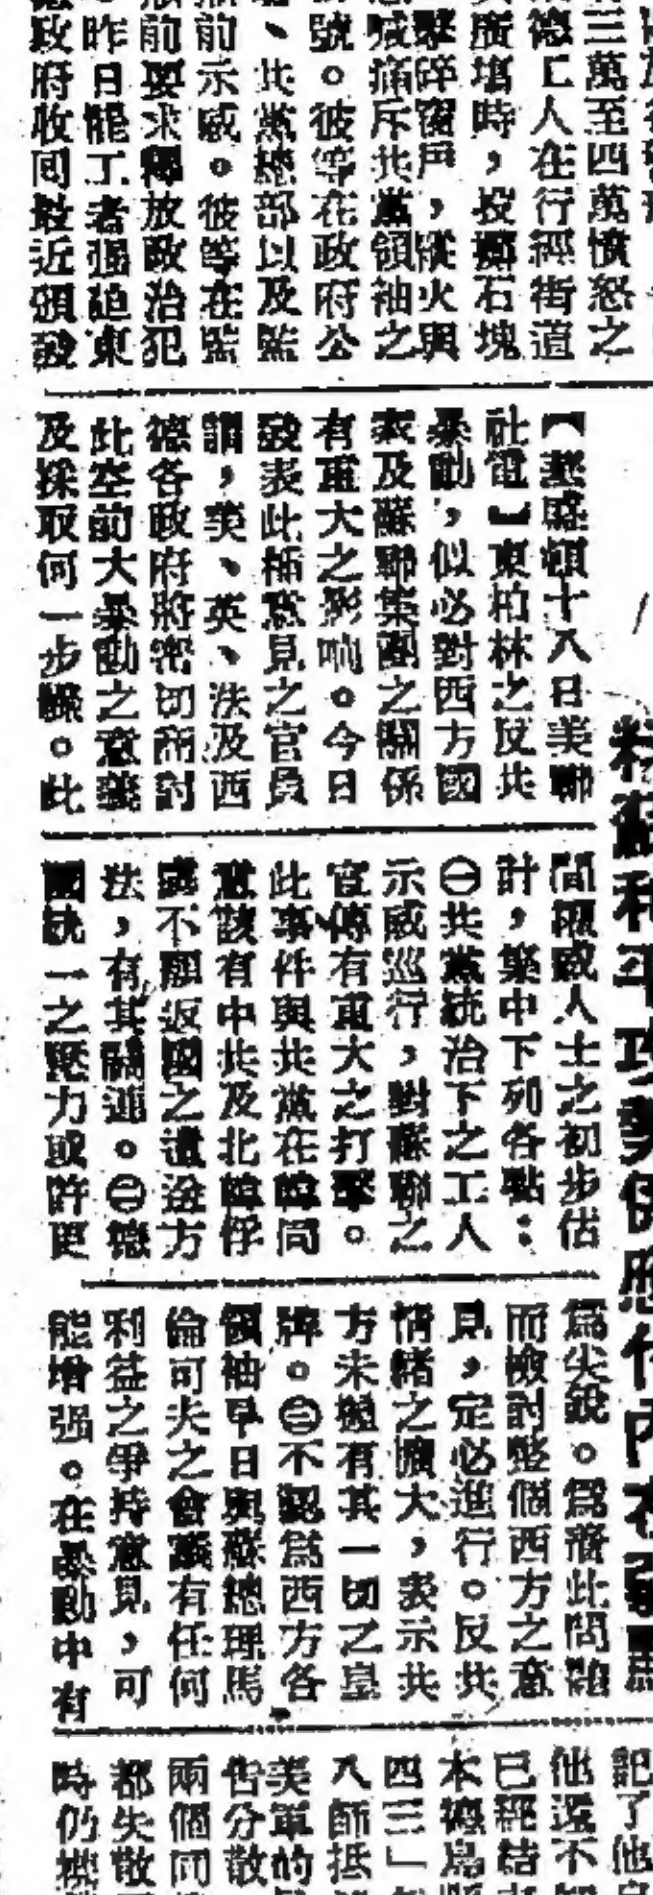 三萬至四萬憤怒之
德工人在行經街道
廣塲時，投擲石塊
擊碎窗戶，縱火與
喊痛斥共黨領袖之
號。彼等在政府公
、共黨總部以及監
前示威。彼等在監
前要求釋放政治犯
昨日罷工者强迫東
政府收回最近頒發
和平攻勢係應付內在
【華盛頓十八日美聯
社電】東柏林之反共
暴動，似必對西方國
家及蘇聯集團之關係
有重大之影响。今日
發表此種意見之官員
謂，美、英、法及西
德各政府將密切商討
此空前大暴動之意義
及採取何一步驟。此
間權威人士之初步估
計，集中下列各點：
㊀共黨統治下之工人
示威巡行，對蘇聯之
宣傳有重大之打擊。
此事件與共黨在韓同
意該有中共及北韓俘
虜不願返國之遣送方
法，有其關連。㊁德
國統一之壓力或許更
爲尖銳。爲着此問題
而檢討整個西方之意
見，定必進行。反共
情緒之擴大，表示共
方未擁有其一切之皇
牌。㊂不認爲西方各
領袖早日與蘇總理馬
倫可夫之會議有任何
利益之爭持意見，可
能增强。在暴動中有
記了他
他還不
已經結
本德島
四三」
八師抵
美軍的
告分散
兩個同
都失散
時仍